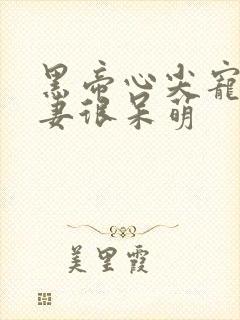 黑帝心尖宠
妻很呆萌
美里霞